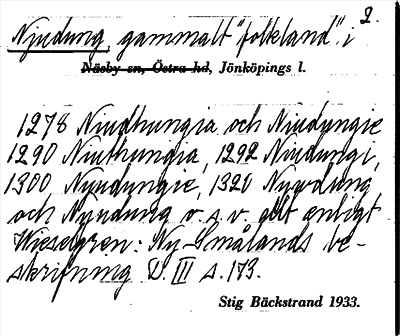 2.
Njudung, gammalt "folkland" i
Näsby sn, Östra hd, Jönköpings l.
1278 Niudhungia och Niudyngie
1290 Niuthungia, 1292 Niudungi,
1300 Nyudyngie, 1320 Nywdung
och Nyudung o. s. v. allt enligt
Wieselgren: Ny Smålands be-
skrifning D. III s. 173.
Stig Bäckstrand 1933.